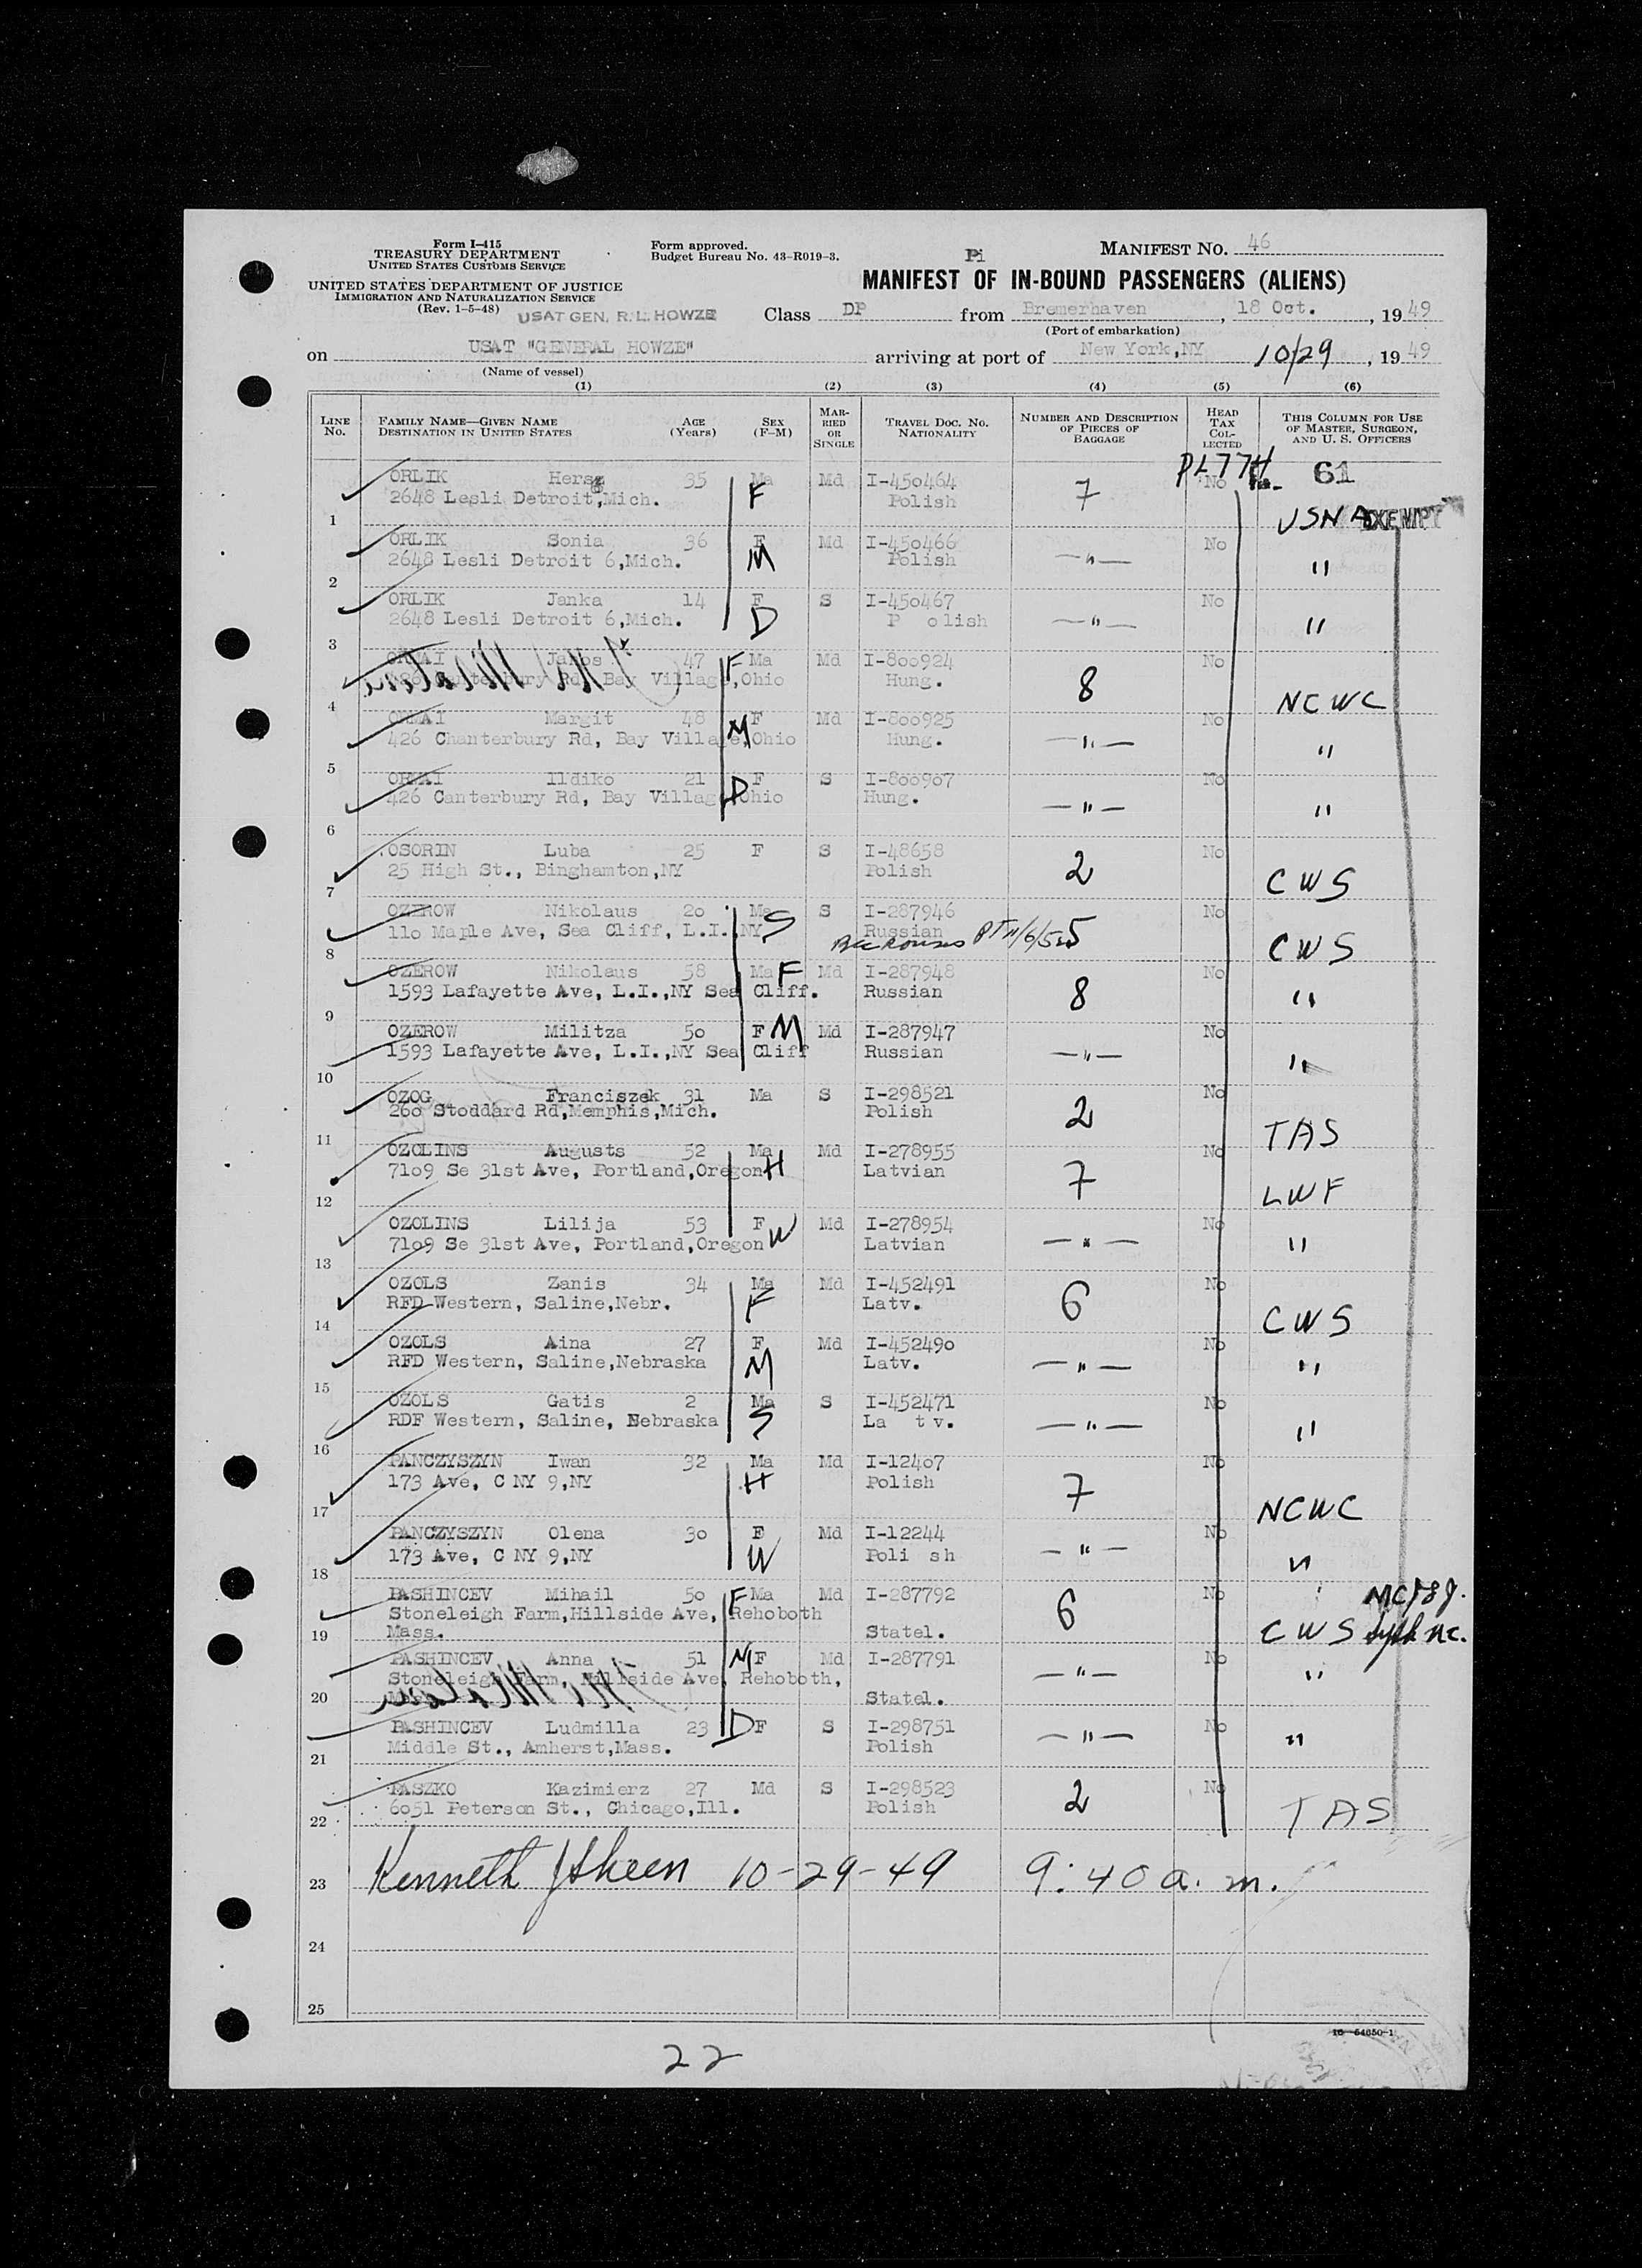 Form I-415
TREASURY DEPARTMENT
UNITED STATES CUSTOMS SERVICE
UNITED STATES DEPARTMENT OF JUSTICE
IMMIGRATION AND NATURALIZATION SERVICE
(Rev. 1-5-48)
USAT GEN. R. L. HOWZE
Form approved.
Budget Bureau No. 43-R019-3.
Pi
MANIFEST NO. 46
MANIFEST OF IN-BOUND PASSENGERS (ALIENS)
Class DP from Bremerhaven, 18 Oct., 1949
(Port of embarkation)
on USAT "GENERAL HOWZE" arriving at port of New York,NY 10/29, 1949
(Name of vessel)
(1) (2) (3) (4) (5) (6)
LINE NO. FAMILY NAME—GIVEN NAME DESTINATION IN UNITED STATES AGE (Years) SEX (F-M) MARRIED OR SINGLE TRAVEL DOC. NO. NATIONALITY NUMBER AND DESCRIPTION OF PIECES OF BAGGAGE HEAD TAX COLLECTED THIS COLUMN FOR USE OF MASTER, SURGEON, AND U. S. OFFICERS
PL774 61
ORLIK Hersz 35 Ma Md I-450464 No
2648 Lesli Detroit,Mich. F Polish 7
1 USNA EXEMPT
ORLIK Sonia 36 F Md I-450466 No
2648 Lesli Detroit 6,Mich. M Polish —"— "
2
ORLIK Janka 14 F S I-450467 No
2648 Lesli Detroit 6,Mich. D P olish —"— "
3
Janos 47 F Ma Md I-800924 No
Rd, Bay Village,Ohio Hung. 8
4 NCWC
Margit 48 F Md I-800925 No
426 Chanterbury Rd, Bay Village,Ohio M Hung. —"— "
5
Ildiko 21 F S I-800907 No
426 Canterbury Rd, Bay Village Ohio D Hung. —"— "
6
OSORIN Luba 25 F S I-48658 No
25 High St., Binghamton,NY Polish 2
7 CWS
OZEROW Nikolaus 20 Ma S I-287946 No
110 Maple Ave, Sea Cliff, L.I.,NY S Russian 5
8 CWS
OZEROW Nikolaus 58 Ma F Md I-287948 No
1593 Lafayette Ave, L.I.,NY Sea Cliff. Russian 8 "
9
OZEROW Militza 50 F M Md I-287947 No
1593 Lafayette Ave, L.I.,NY Sea Cliff Russian —"— "
10
OZOG Franciszek 31 Ma S I-298521 No
260 Stoddard Rd,Memphis,Mich. Polish 2
11 TAS
OZOLINS Augusts 52 Ma Md I-278955 No
7109 Se 31st Ave, Portland,Oregon H Latvian 7
12 LWF
OZOLINS Lilija 53 F W Md I-278954 No
7109 Se 31st Ave, Portland,Oregon Latvian —"— "
13
OZOLS Zanis 34 Ma Md I-452491 No
RFD Western, Saline,Nebr. F Latv. 6
14 CWS
OZOLS Aina 27 F Md I-452490 No
RFD Western, Saline,Nebraska M Latv. —"— "
15
OZOLS Gatis 2 Ma S I-452471 No
RDF Western, Saline, Nebraska S La t v. —"— "
16
PANCZYSZYN Iwan 32 Ma Md I-12407 No
173 Ave, C NY 9,NY H Polish 7
17 NCWC
PANCZYSZYN Olena 30 F Md I-12244 No
173 Ave, C NY 9,NY W Poli sh —"— "
18
PASHINCEV Mihail 50 F Ma Md I-287792 No
Stoneleigh Farm,Hillside Ave, Rehoboth 6
19 Mass. Statel. CWS
PASHINCEV Anna 51 M F Md I-287791 No
Stoneleigh Farm, Hillside Ave, Rehoboth, —"— "
20 Statel.
PASHINCEV Ludmilla 23 D F S I-298751 No
Middle St., Amherst,Mass. Polish —"— "
21
PASZKO Kazimierz 27 Md S I-298523 No
6051 Peterson St., Chicago,Ill. Polish 2
22 TAS
23 Kenneth J Skeen 10-29-49 9:40 a. m.
24
25
16—54650-1
22